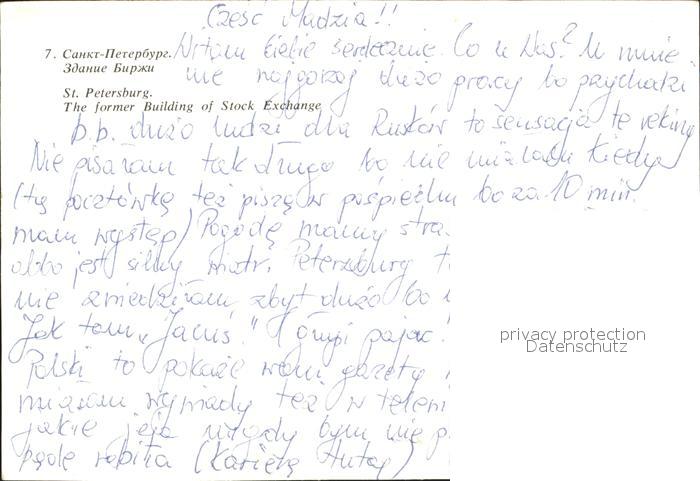 Cześć Madzia!!
7. Санкт-Петербург.
Здание Биржи
St. Petersburg.
The former Building of Stock Exchange
Witam Ciebie serdecznie. Co u Was? U mnie
nie najgorzej dużo pracy bo przychodzi
b.b. dużo ludzi dla Rusków to sensacja te rekiny
Nie pisałam tak długo bo nie miałam kiedy
(tą pocztówkę też piszę w pośpiechu bo za 10 min.
mam występ) Pogodę mamy
albo jest silny wiatr. Petersburg
nie zwiedziłam zbyt dużo bo
Jak tam „Januś" i gruj pajac!
Polski to pokażę wam gazety
miałam wywiady też w
jakie jeja nigdy bym nie
będę robiła (Karierę
privacy protection
Datenschutz